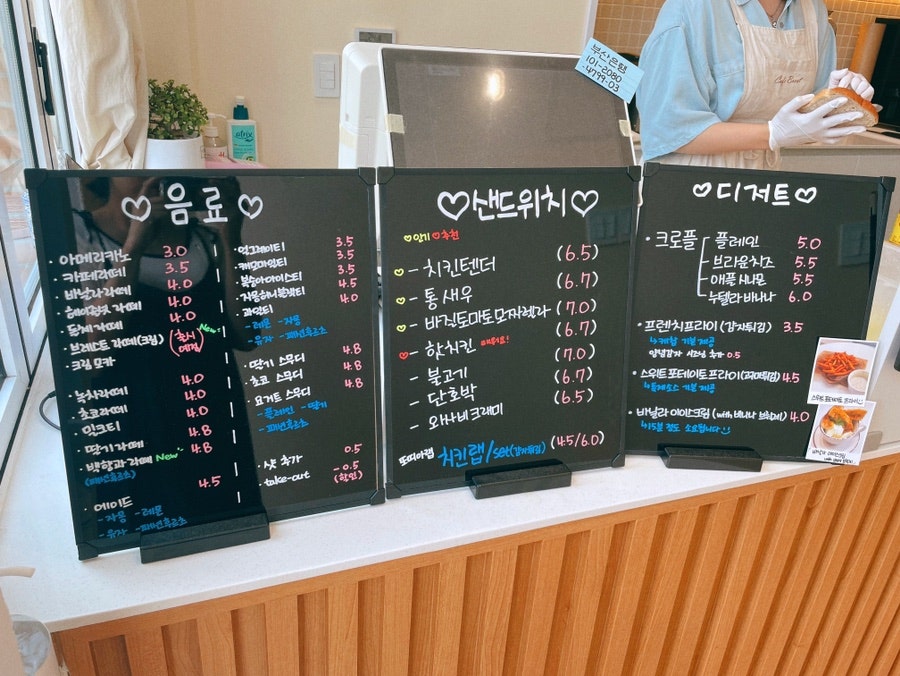 부산은행
101-2080
-4799-03
Cafe
♡ 음료 ♡
· 아메리카노 3.0
· 카페라떼 3.5
· 바닐라라떼 4.0
· 헤이즐넛 라떼 4.0
· 돌체 라떼 4.0
· 브레스트 라떼(크림) (출시예정) New
· 크림 모카
· 녹차라떼 4.0
· 초코라떼 4.0
· 밀크티 4.0
· 딸기 라떼 4.8
· 뱅향과 라떼 New 4.8
(패션후르츠)
· 에이드 4.5
- 자몽 - 레몬
- 유자 - 패션후르츠
· 얼그레이티 3.5
· 캐모마일티 3.5
· 복숭아아이스티 3.5
· 자몽허니블랙티 4.5
· 과일티 4.0
- 레몬 - 자몽
- 유자 - 패션후르츠
· 딸기 스무디 4.8
· 초코 스무디 4.8
· 요거트 스무디 4.8
- 플레인 - 딸기
- 패션후르츠
· 샷 추가 0.5
· take-out -0.5
(할인)
♡샌드위치♡
♡인기 ♡추천
♡ - 치킨텐더 (6.5)
♡ - 통새우 (6.7)
♡ - 바질토마토모짜렐라 (7.0)
♡ - 핫치킨 매워요! (6.7)
- 불고기 (7.0)
- 단호박 (6.7)
- 와사비크래미 (6.5)
또띠아랩 치킨랩/set(감자튀김) (4.5/6.0)
♡디저트♡
· 크로플 플레인 5.0
브라운치즈 5.5
애플시나몬 5.5
누텔라바나나 6.0
· 프렌치프라이 (감자튀김) 3.5
↳케찹 기본 제공
양념감자 시즈닝 추가 0.5
· 스위트포테이토프라이(고구마튀김) 4.5
↳돌체소스 기본 제공
· 바닐라 아이스크림 (with 바나나 브륄레) 4.0
↳15분 정도 소요됩니다